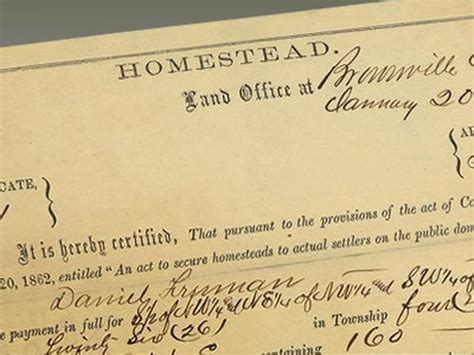 HOMESTEAD.
Land Office at Brownville
January 20
AP
CATE,
It is hereby certified, That pursuant to the provisions of the act of Co
20, 1862, entitled "An act to secure homesteads to actual settlers on the public dom
Daniel Freeman
e payment in full for S½ of NW¼ & NE¼ of NW¼ and SW¼ of
Twenty Six (26) in Township four
160